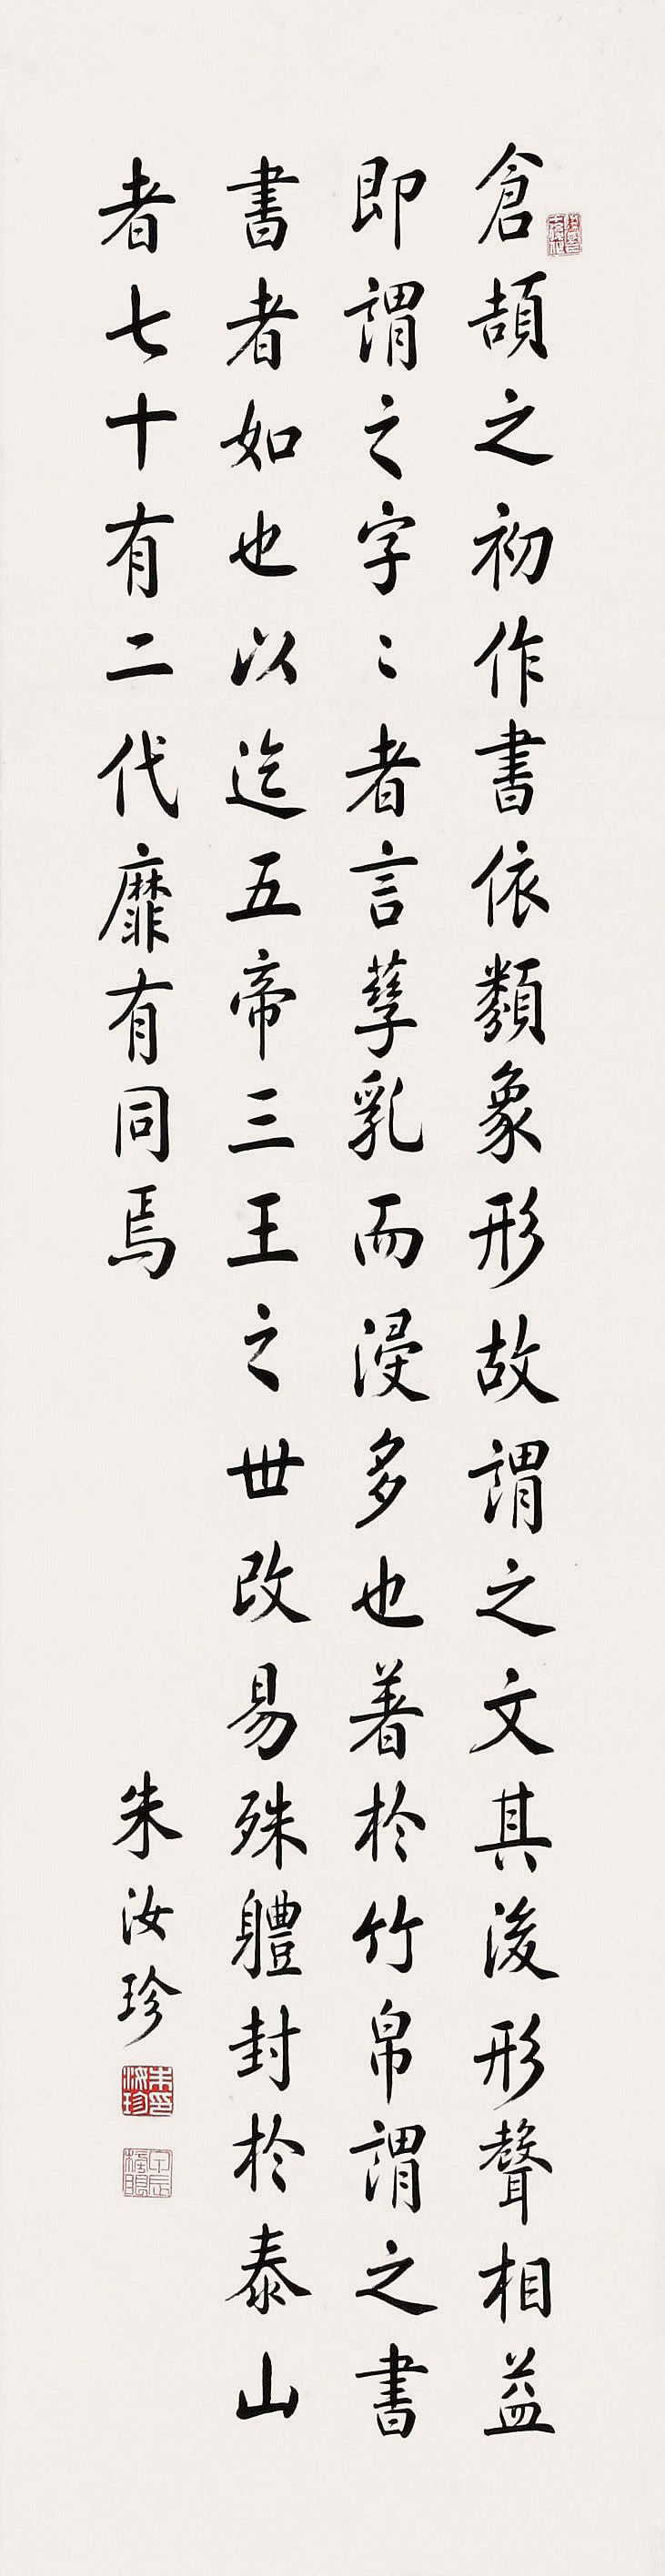 倉頡之初作書依類象形故謂之文其後形聲相益
即謂之字〻者言孳乳而浸多也着於竹帛謂之書
書者如也以迄五帝三王之世改易殊軆封於泰山
者七十有二代靡有同焉
朱汝珍
朱汝珍印
甲辰榜眼